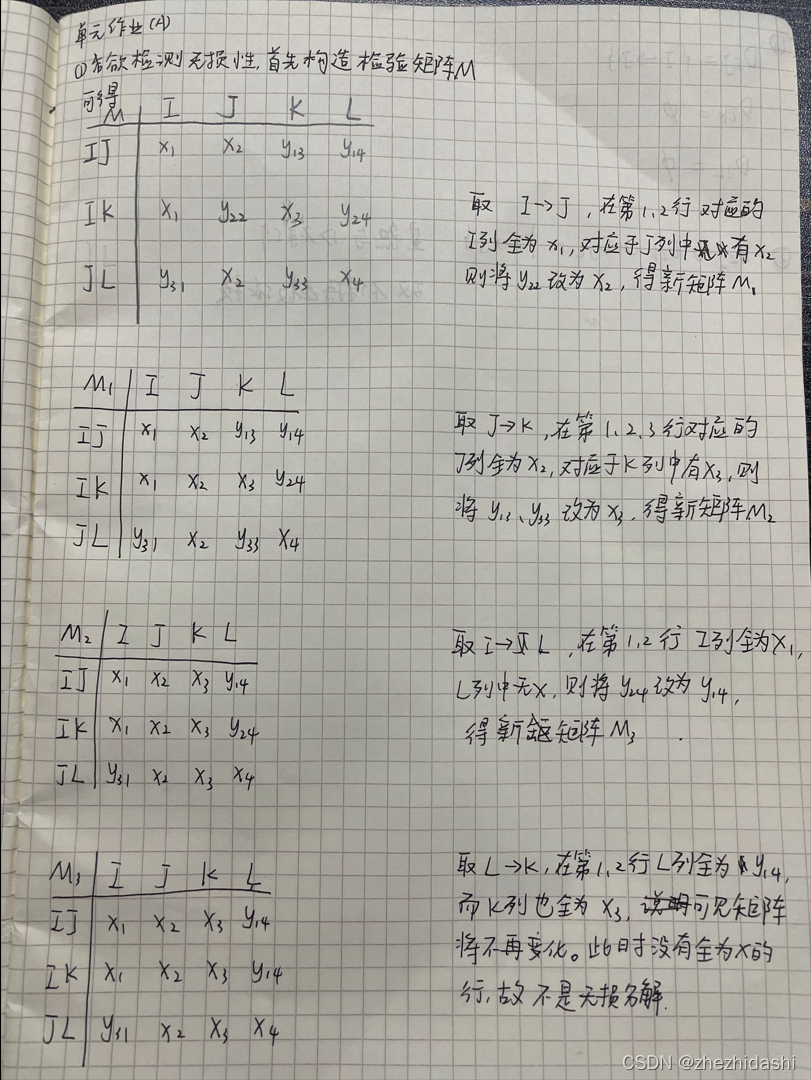 单元作业(A)
①若欲检测无损性,首先构造检验矩阵M
可得
M I J K L
IJ x₁ x₂ y₁₃ y₁₄
IK x₁ y₂₂ x₃ y₂₄
JL y₃₁ x₂ y₃₃ x₄
取 I→J ,在第1,2行对应的
I列全为x₁,对应于J列中有x₂
则将y₂₂改为x₂,得新矩阵M₁
M₁ I J K L
IJ x₁ x₂ y₁₃ y₁₄
IK x₁ x₂ x₃ y₂₄
JL y₃₁ x₂ y₃₃ x₄
取 J→K ,在第1,2,3行对应的
J列全为x₂,对应于K列中有x₃,则
将 y₁₃、y₃₃ 改为 x₃.得新矩阵M₂
M₂ I J K L
IJ x₁ x₂ x₃ y₁₄
IK x₁ x₂ x₃ y₂₄
JL y₃₁ x₂ x₃ x₄
取 I→L ,在第1,2行 I列全为x₁,
L列中无x,则将 y₂₄ 改为 y₁₄,
得新矩阵 M₃ .
M₃ I J K L
IJ x₁ x₂ x₃ y₁₄
IK x₁ x₂ x₃ y₁₄
JL y₃₁ x₂ x₃ x₄
取 L→K,在第1,2行L列全为 y₁₄,
而K列也全为 x₃,可见矩阵
将不再变化。此时没有全为x的
行,故 不是无损分解.
CSDN @zhezhidashi